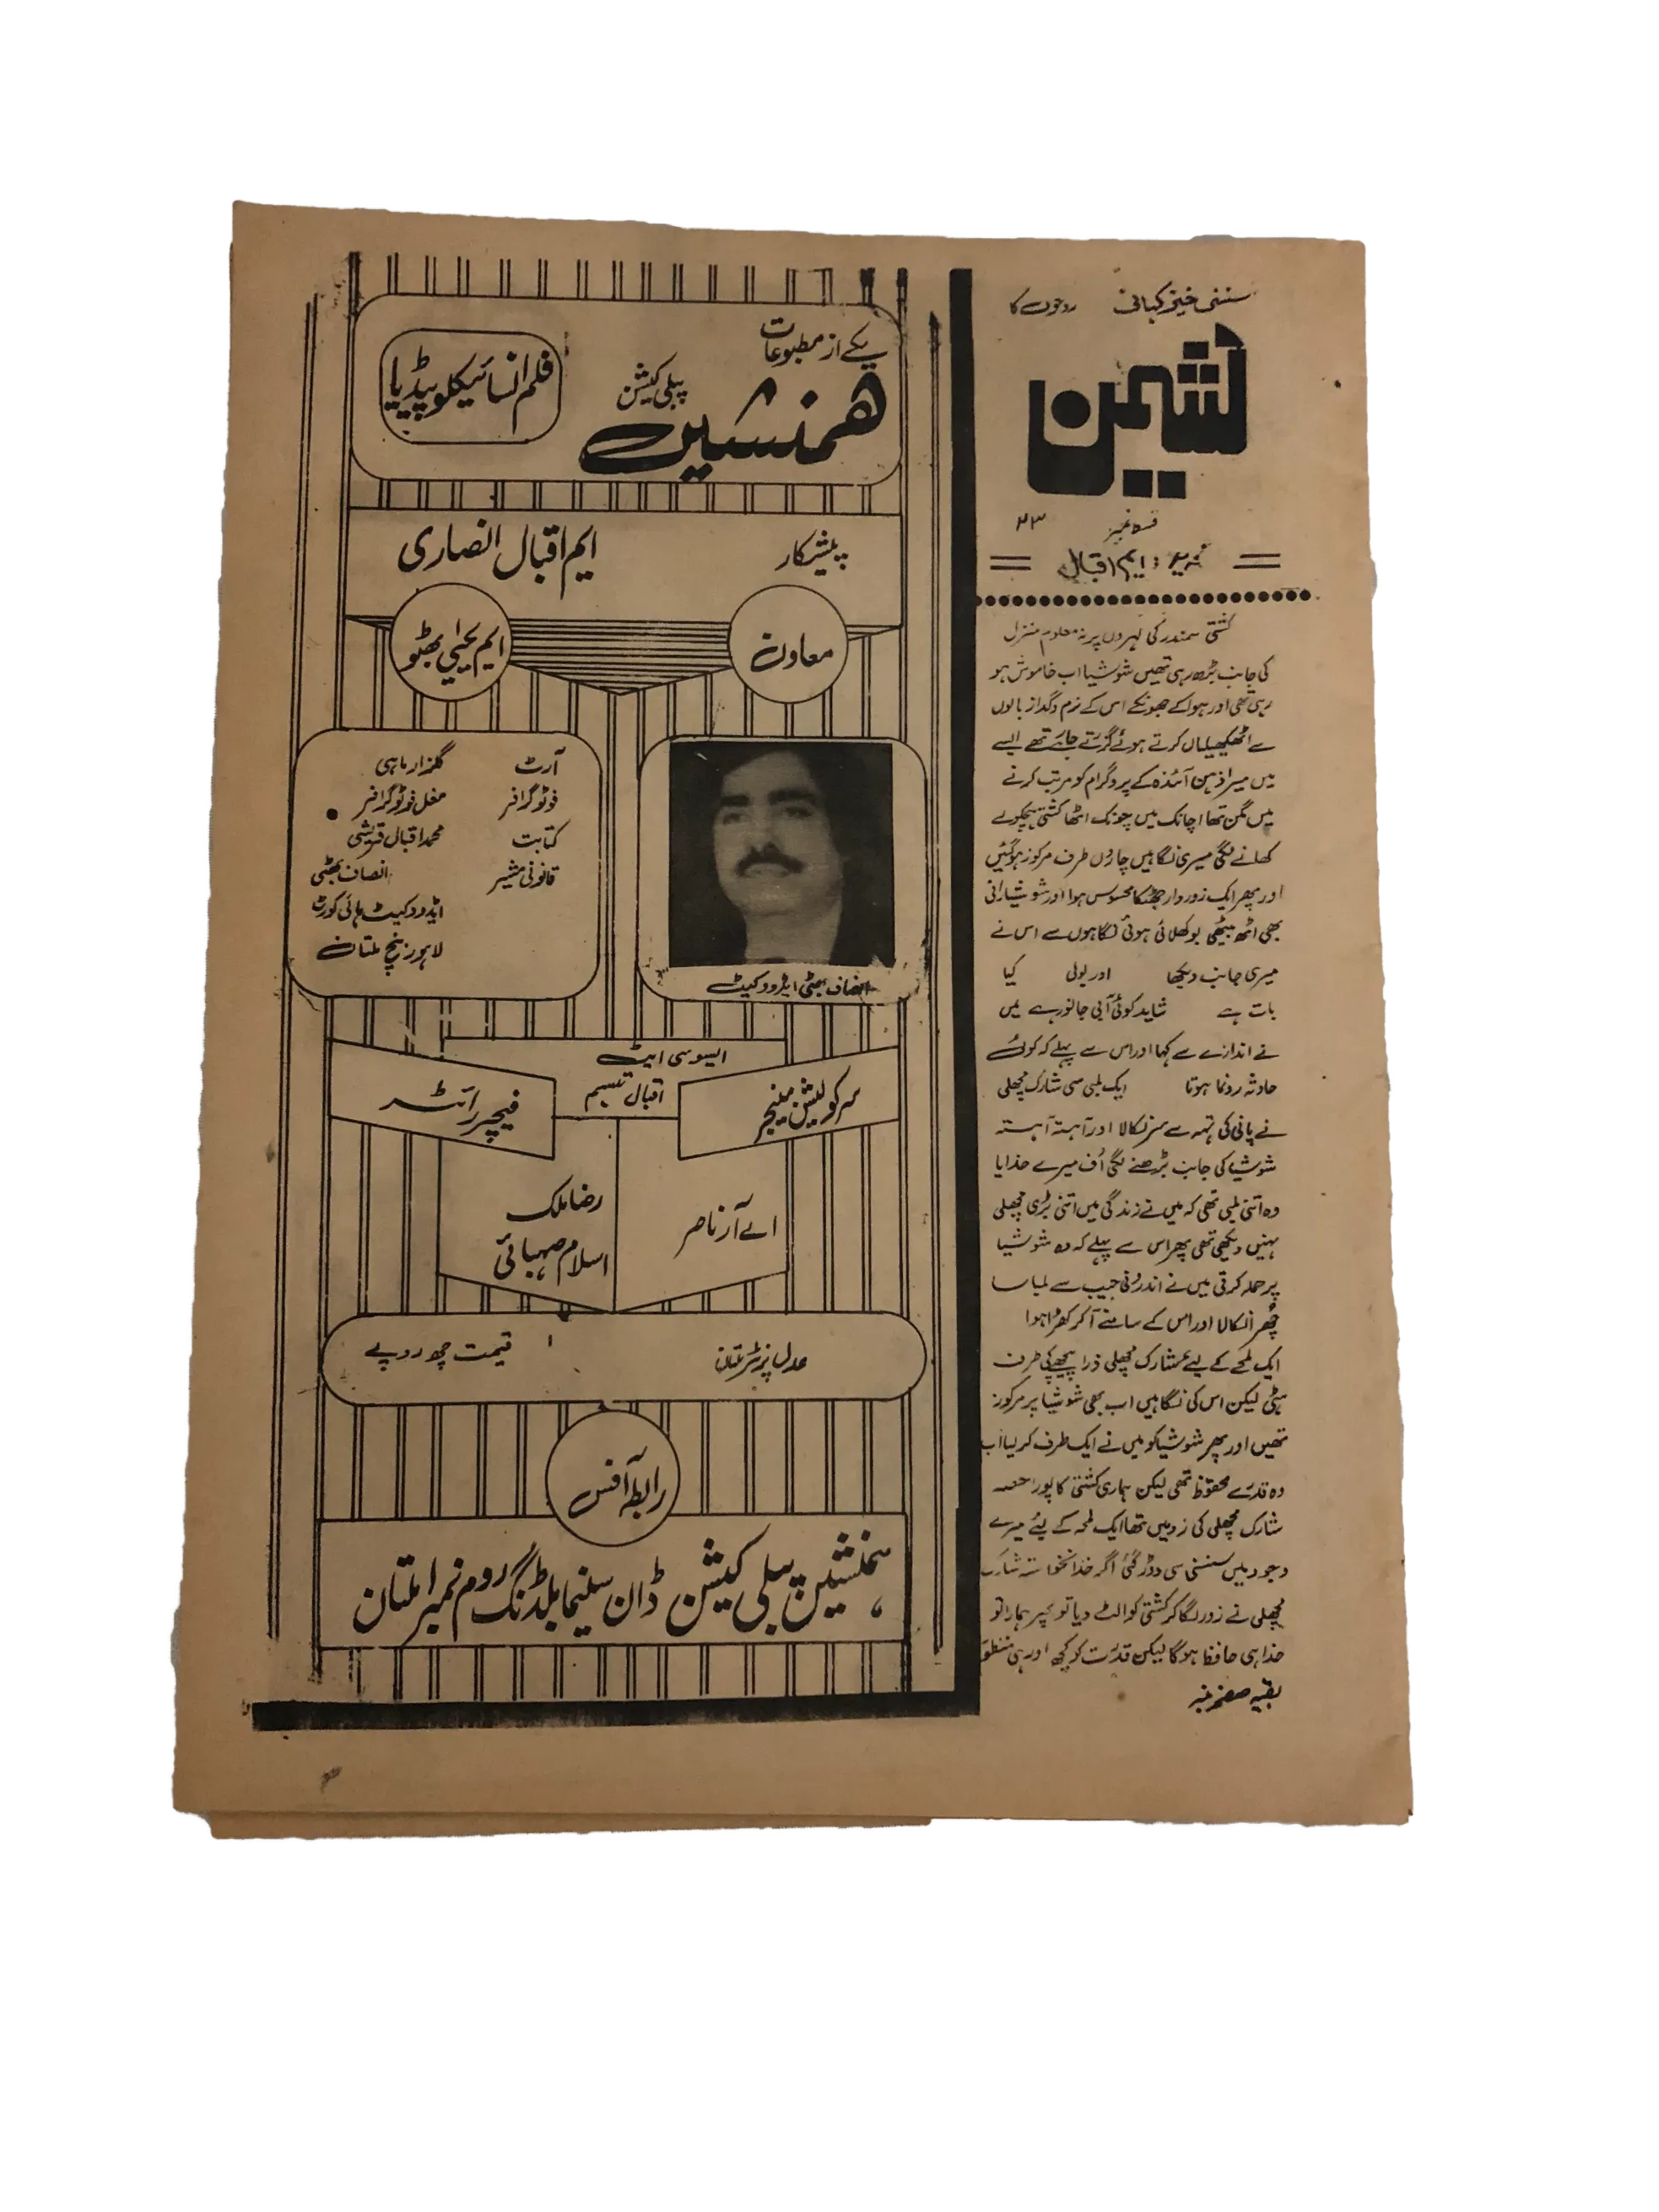 سنسنی خیز کہانی روحوں کا
نشیمن
قسط نمبر ۲۳
تحریر: ایم اقبال
کشتی سمندر کی لہروں پر نہ معلوم منزل
کی جانب بڑھ رہی تھیں شوشیا اب خاموش ہو
رہی تھی اور ہوا کے جھونکے اس کے نرم و گداز بالوں
سے اٹھکھیلیاں کرتے ہوئے گزرتے جا رہے تھے ایسے
میں میرا ذہن آئندہ کے پروگرام کو مرتب کرنے
میں مگن تھا اچانک میں چونک اٹھا کشتی ہچکولے
کھانے لگی میری نگاہیں چاروں طرف مرکوز ہو گئیں
اور پھر ایک زور دار جھٹکا محسوس ہوا اور شوشیا رانی
بھی اٹھ بیٹھی بوکھلائی ہوئی نگاہوں سے اس نے
میری جانب دیکھا اور بولی کیا
بات ہے شاید کوئی آبی جانور ہے میں
نے اندازے سے کہا اور اس سے پہلے کہ کوئی
حادثہ رونما ہوتا ایک لمبی سی شارک مچھلی
نے پانی کی تہہ سے سر نکالا اور آہستہ آہستہ
شوشیا کی جانب بڑھنے لگی اُف میرے خدایا
وہ اتنی لمبی تھی کہ میں نے زندگی میں اتنی بڑی مچھلی
نہیں دیکھی تھی پھر اس سے پہلے کہ وہ شوشیا
پر حملہ کرتی میں نے اندرونی جیب سے لمبا سا
چھُرا نکالا اور اس کے سامنے آکر کھڑا ہوا
ایک لمحے کے لیئے شارک مچھلی ذرا پیچھے کی طرف
ہٹی لیکن اس کی نگاہیں اب بھی شوشیا پر مرکوز
تھیں اور پھر شوشیا کو میں نے ایک طرف کر لیا اب
وہ قدرے محفوظ تھی لیکن ہماری کشتی کا پورا حصہ
شارک مچھلی کی زد میں تھا ایک لمحہ کے لیئے میرے
وجود میں سنسنی سی دوڑ گئی اگر خدانخواستہ شارک
مچھلی نے زور لگا کر کشتی کو الٹ دیا تو پھر ہمارا تو
خدا ہی حافظ ہوگا لیکن قدرت کو کچھ اور ہی منظور
بقیہ صفحہ نمبر
یکے از مطبوعات
ھمنشین پبلی کیشن
فلم انسائیکلوپیڈیا
پیشکار ایم اقبال انصاری
معاون ایم یحیٰی بھٹو
آرٹ گلزار ماہی
فوٹو گرافر مغل فوٹو گرافر
کتابت محمد اقبال قریشی
قانونی مشیر انصاف بھٹی
ایڈووکیٹ ہائی کورٹ
لاہور بنچ ملتان
انصاف بھٹی ایڈووکیٹ
ایسوسی ایٹ
اقبال تبسم
سرکولیشن منیجر
اے آر ناصر
فیچر رائٹر
رضا ملک
اسلام صہبائی
عدل پرنٹرز ملتان
قیمت چھ روپے
رابطہ آفس
ہمنشین پبلی کیشن ڈان سنیما بلڈنگ روم نمبر ۱ ملتان